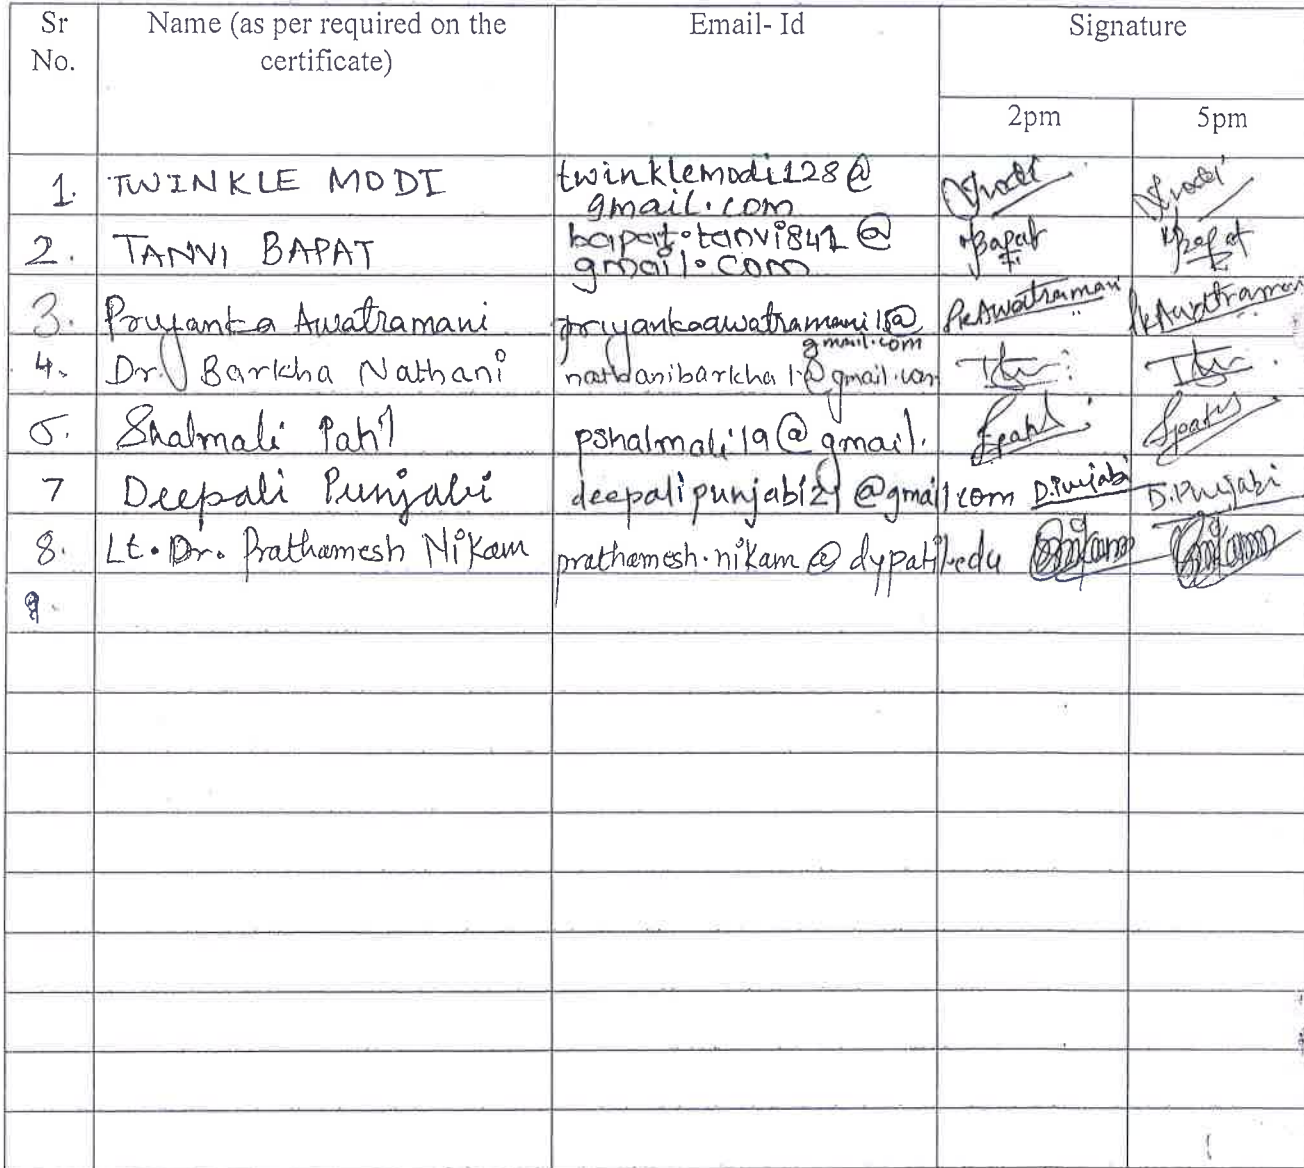 Sr No. Name (as per required on the certificate) Email- Id Signature
2pm 5pm
1. TWINKLE MODI twinklemodi128@
gmail.com
2. TANVI BAPAT bapat.tanvi841@
gmail.com
Bapat Bapat
3. Priyanka Awatramani priyankaawatramani15@
gmail.com
PKAwatramani PKAwatramani
4. Dr. Barkha Nathani nathanibarkha1@gmail.com
5. Shalmali Patil pshalmali19@gmail.
Spatil Spatil
7 Deepali Punjabi deepalipunjabi21@gmail.com D.Punjabi D.Punjabi
8. Lt. Dr. Prathamesh Nikam prathamesh.nikam@dypatil.edu
9.